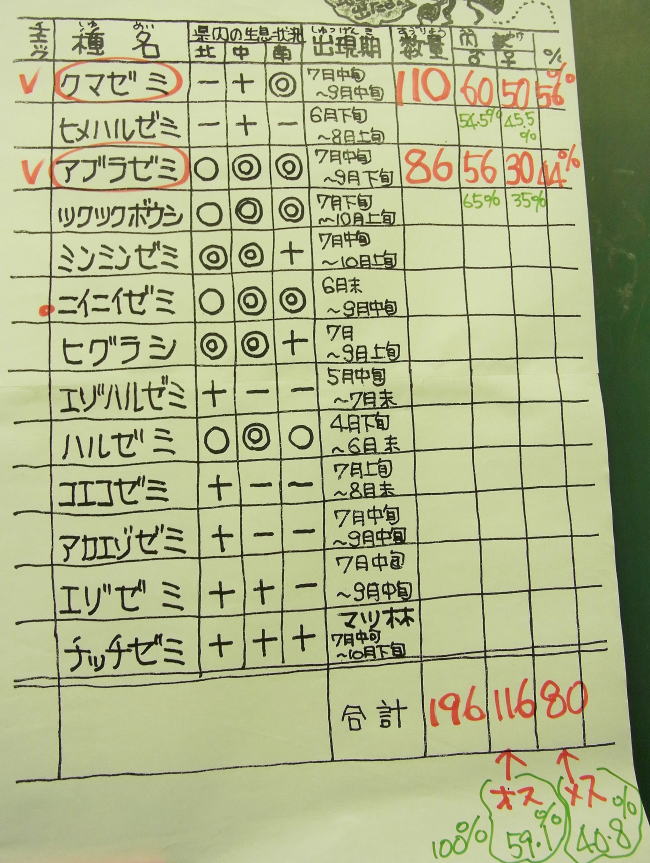 チェック 種名 県内の生息状況 出現期 数量 %
しゅ めい しゅつげんき すうりょう
北 中 南
✓ クマゼミ － ＋ ◎ 7月中旬～9月中旬 110 60 50 56%
ヒメハルゼミ － ＋ － 6月下旬～8月上旬 54.5% 45.5%
✓ アブラゼミ ○ ◎ ◎ 7月中旬～9月下旬 86 56 30 44%
ツクツクボウシ ○ ◎ ◎ 7月下旬～10月上旬 65% 35%
ミンミンゼミ ◎ ◎ ＋ 7月中旬～10月上旬
ニイニイゼミ ○ ◎ ◎ 6月末～9月中旬
ヒグラシ ◎ ◎ ＋ 7月～9月上旬
エゾハルゼミ ＋ － － 5月中旬～7月末
ハルゼミ ○ ◎ ○ 4月下旬～6月末
コエゾゼミ ＋ － － 7月上旬～8月末
アカエゾゼミ ＋ － － 7月中旬～9月中旬
エゾゼミ ＋ ＋ － 7月中旬～9月中旬
チッチゼミ ＋ ＋ ＋ マツ林 7月中旬～10月下旬
合計 196 116 80
↑ ↑
オス メス
100% 59.1% 40.8%